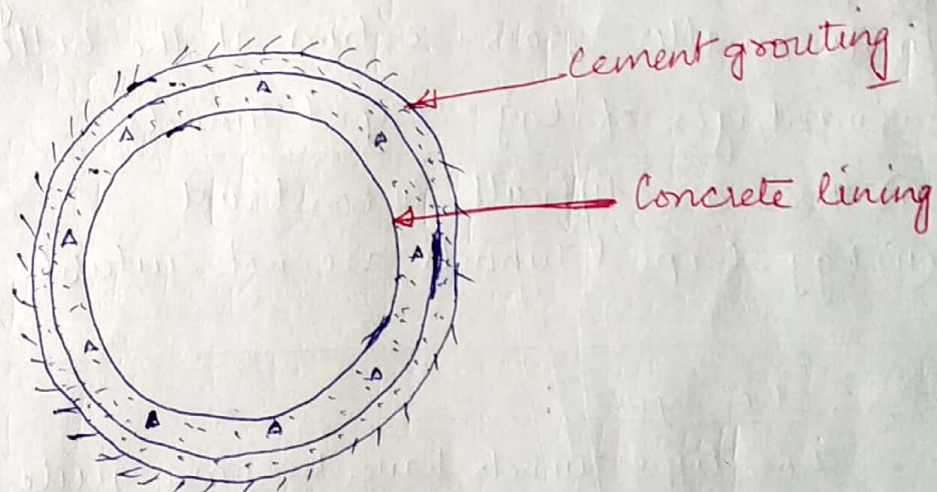 Cement grouting
Concrete lining